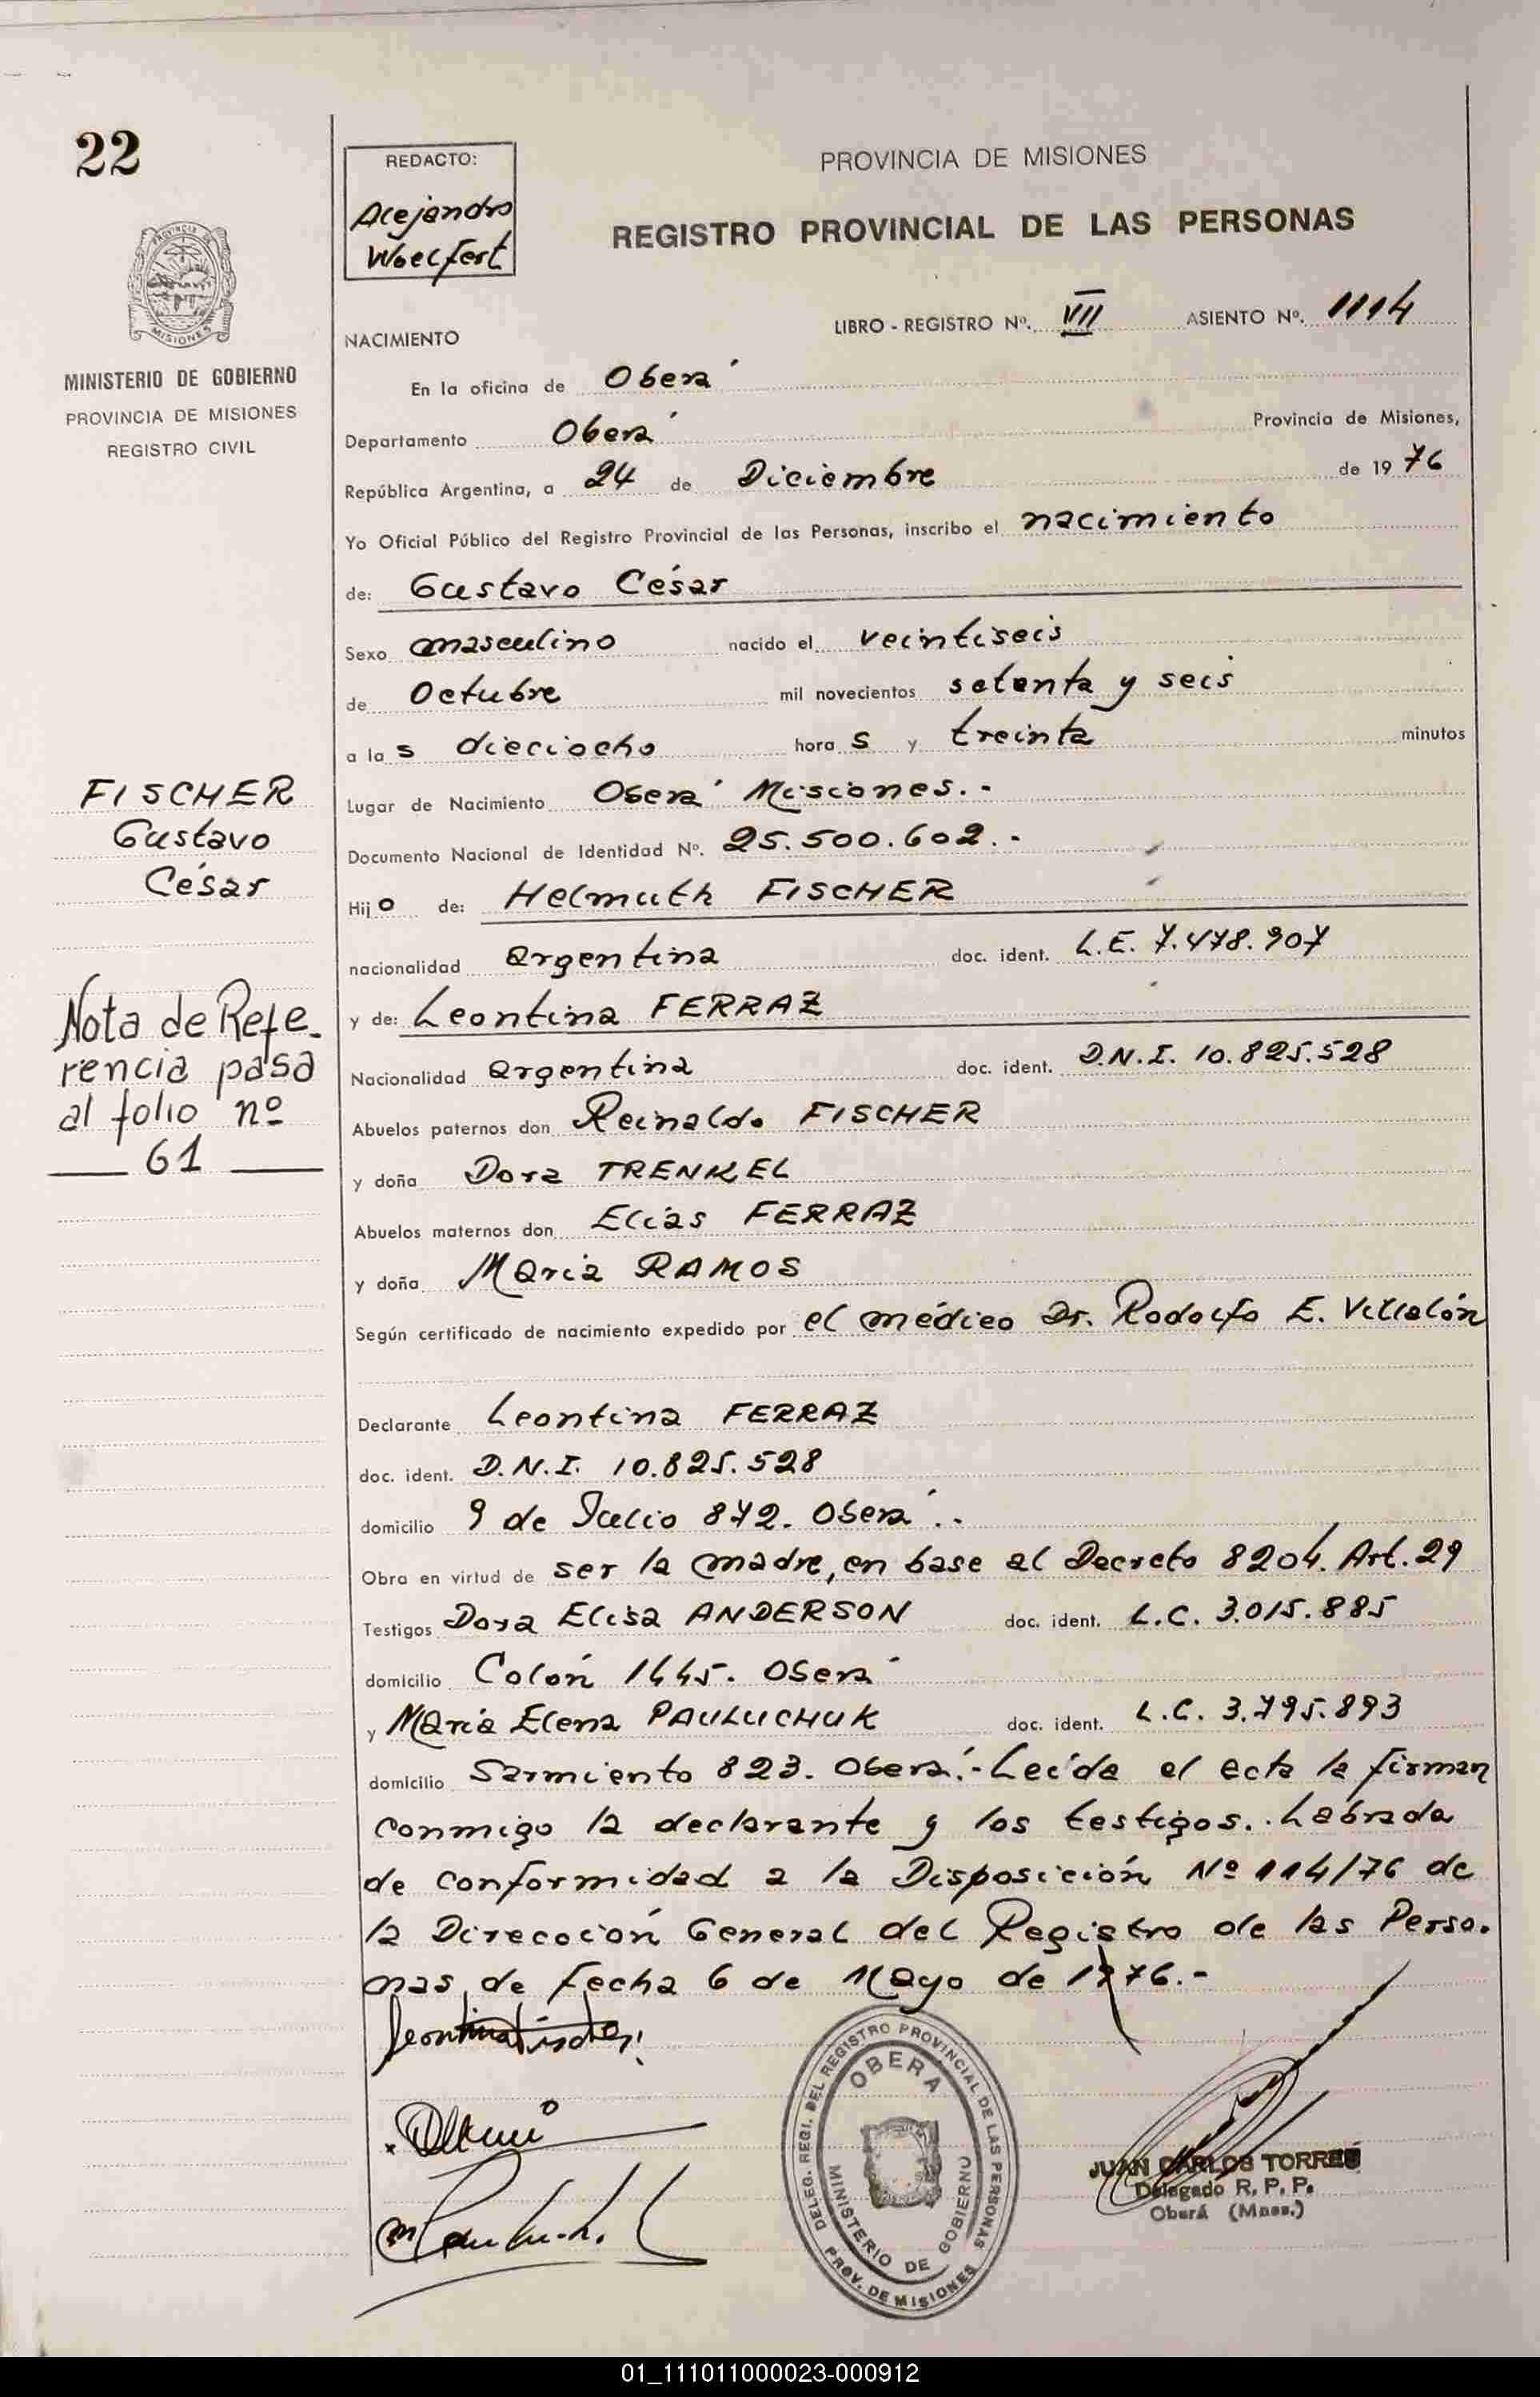 22
REDACTO:
Alejandro
Woelfert
PROVINCIA DE MISIONES
REGISTRO PROVINCIAL DE LAS PERSONAS
LIBRO - REGISTRO Nº. VII ASIENTO Nº. 1114
NACIMIENTO
MINISTERIO DE GOBIERNO
PROVINCIA DE MISIONES
REGISTRO CIVIL
En la oficina de Oberá
Departamento Oberá Provincia de Misiones,
República Argentina, a 24 de Diciembre de 1976
Yo Oficial Público del Registro Provincial de las Personas, inscribo el nacimiento
de: Gustavo César
Sexo masculino nacido el veintiseis
de Octubre mil novecientos setenta y seis
a las dieciocho horas y treinta minutos
Lugar de Nacimiento Oberá Misiones.-
Documento Nacional de Identidad Nº. 25.500.602.-
Hijo de: Helmuth FISCHER
nacionalidad argentina doc. ident. L.E. 7.478.907
y de: Leontina FERRAZ
Nacionalidad argentina doc. ident. D.N.I. 10.825.528
Abuelos paternos don Reinaldo FISCHER
y doña Dora TRENKEL
Abuelos maternos don Elias FERRAZ
y doña Maria RAMOS
Según certificado de nacimiento expedido por el médico Dr. Rodolfo E. Villalón
Declarante Leontina FERRAZ
doc. ident. D.N.I. 10.825.528
domicilio 9 de Julio 872. Oberá.-
Obra en virtud de ser la madre, en base al Decreto 8204. Art. 29
Testigos Dora Elisa ANDERSON doc. ident. L.C. 3.015.885
domicilio Colón 1445. Oberá
y Maria Elena PAULUCHUK doc. ident. L.C. 3.795.893
domicilio Sarmiento 823. Oberá.- Leída el acta la firman
conmigo la declarante y los testigos.. Labrada
de conformidad a la Disposición Nº 114/76 de
la Direcoción General del Registro de las Perso.
nas, de fecha 6 de Mayo de 1976.-
FISCHER
Gustavo
César
Nota de Refe-
rencia pasa
al folio nº
61
PROVINCIA DE MISIONES
DELEG. REGI. DEL REGISTRO PROVINCIAL DE LAS PERSONAS
OBERA
MINISTERIO DE GOBIERNO
PROV. DE MISIONES
JUAN CARLOS
Delegado R. P. P.
Oberá (Mnes.)
01_111011000023-000912